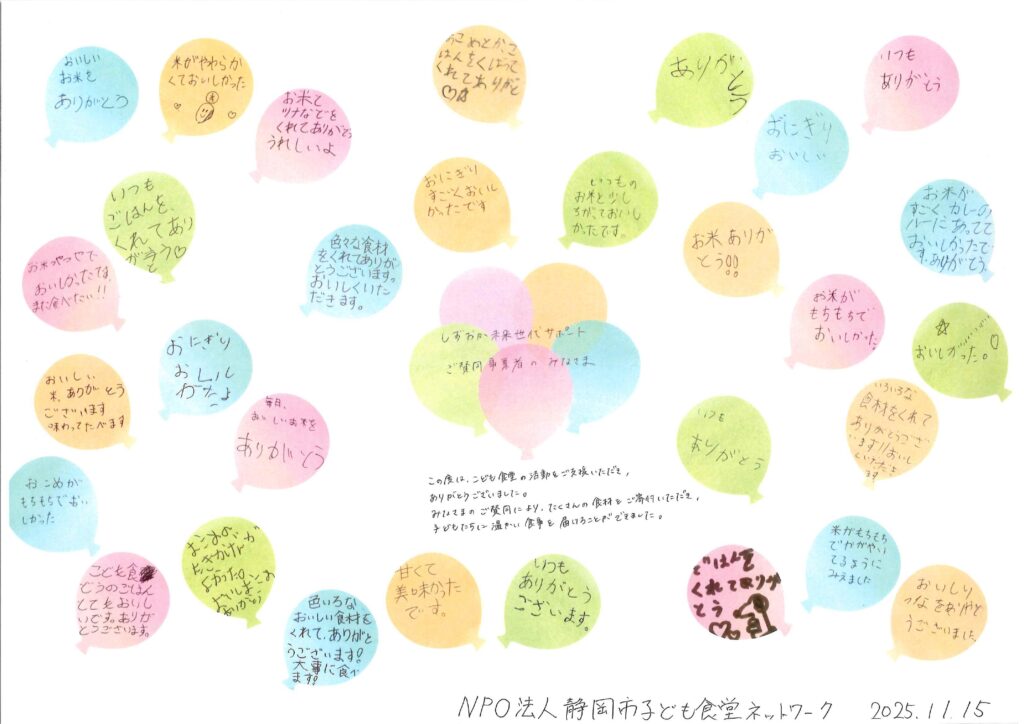 おいしい
お米を
ありがとう
米がやわらか
くておいしかった
お米と
ツナなどを
くれてありがとう
うれしいよ
おこめとか、ご
はんをくばって
くれてありがと
ありがとう
いつも
ありがとう
おにぎり
おいしい
いつも
ごはんを、
くれてあり
がとう
おにぎり
すごくおいし
かったです
いつもの
お米と少し
ちがっておいし
かったです。
お米ありが
とう!!
お米が
すごく、カレーの
ルーにあってて
おいしかったで
す。ありがとう。
お米つやつやで
おいしかったです
また食べたい!!
色々な食材
をくれてありが
とうございます。
おいしくいた
だきます。
お米が
もちもちで
おいしかった。
おいしかった。
しずおか未来世代サポート
ご賛同事業者のみなさま
おにぎり
おいしい
おいしい
米、ありがとう
ございます
味わってたべます
毎月、
おいしいお米を
ありがとう
いつも
ありがとう
いろいろな
食材をくれて
ありがとうござ
います!!おいし
この度は、こども食堂の活動をご支援いただき、
ありがとうございました。
みなさまのご賛同により、たくさんの食材をご寄付いただき、
子どもたちに温かい食事を届けることができました。
おこめが
もちもちでおい
しかった
こども食
どうのごはん
とてもおいし
いです。ありが
とうございます。
おこめが
よかった。
ありがとう
色いろな
おいしい食材を
くれて、ありがと
うございます!
大事に食べ
ます!
甘くて
美味かった
です。
いつも
ありがとう
ございます。
ごはんを
くれてありが
とう
米がもちもち
でかがやい
てるように
みえました
おいしい
つなをありがと
うございました
NPO法人静岡市子ども食堂ネットワーク 2025.11.15